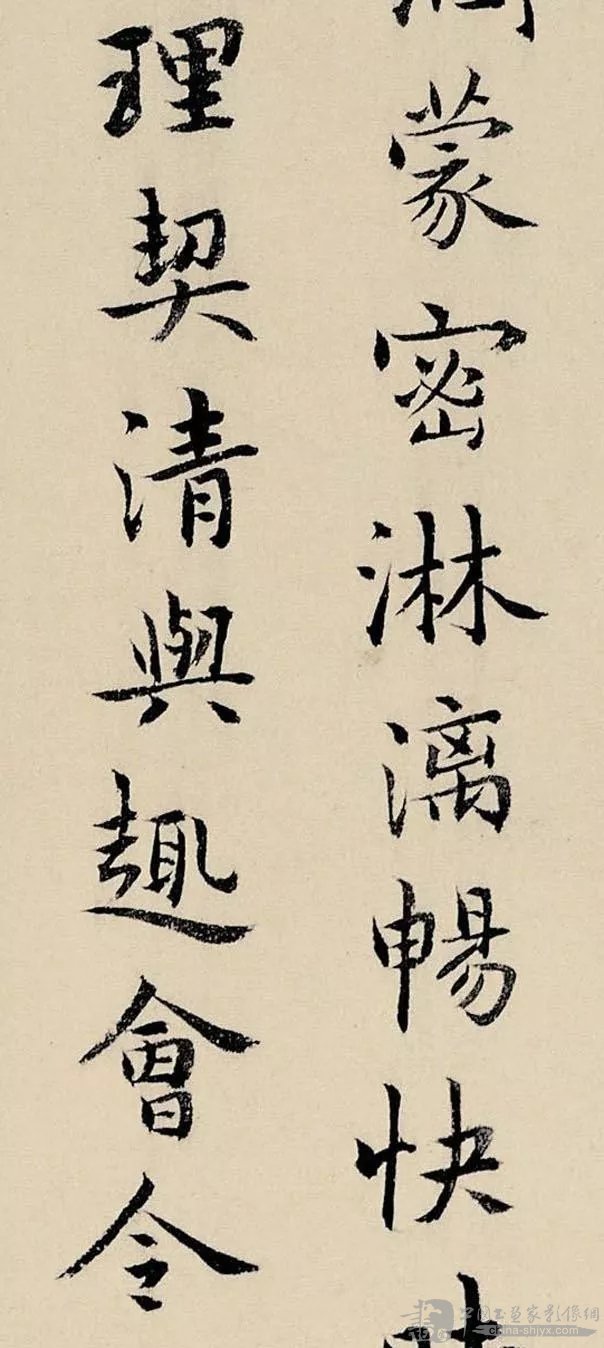 蒙密淋漓暢快
理契清與趣會令
中國書畫家影像網
china-shjyx.com